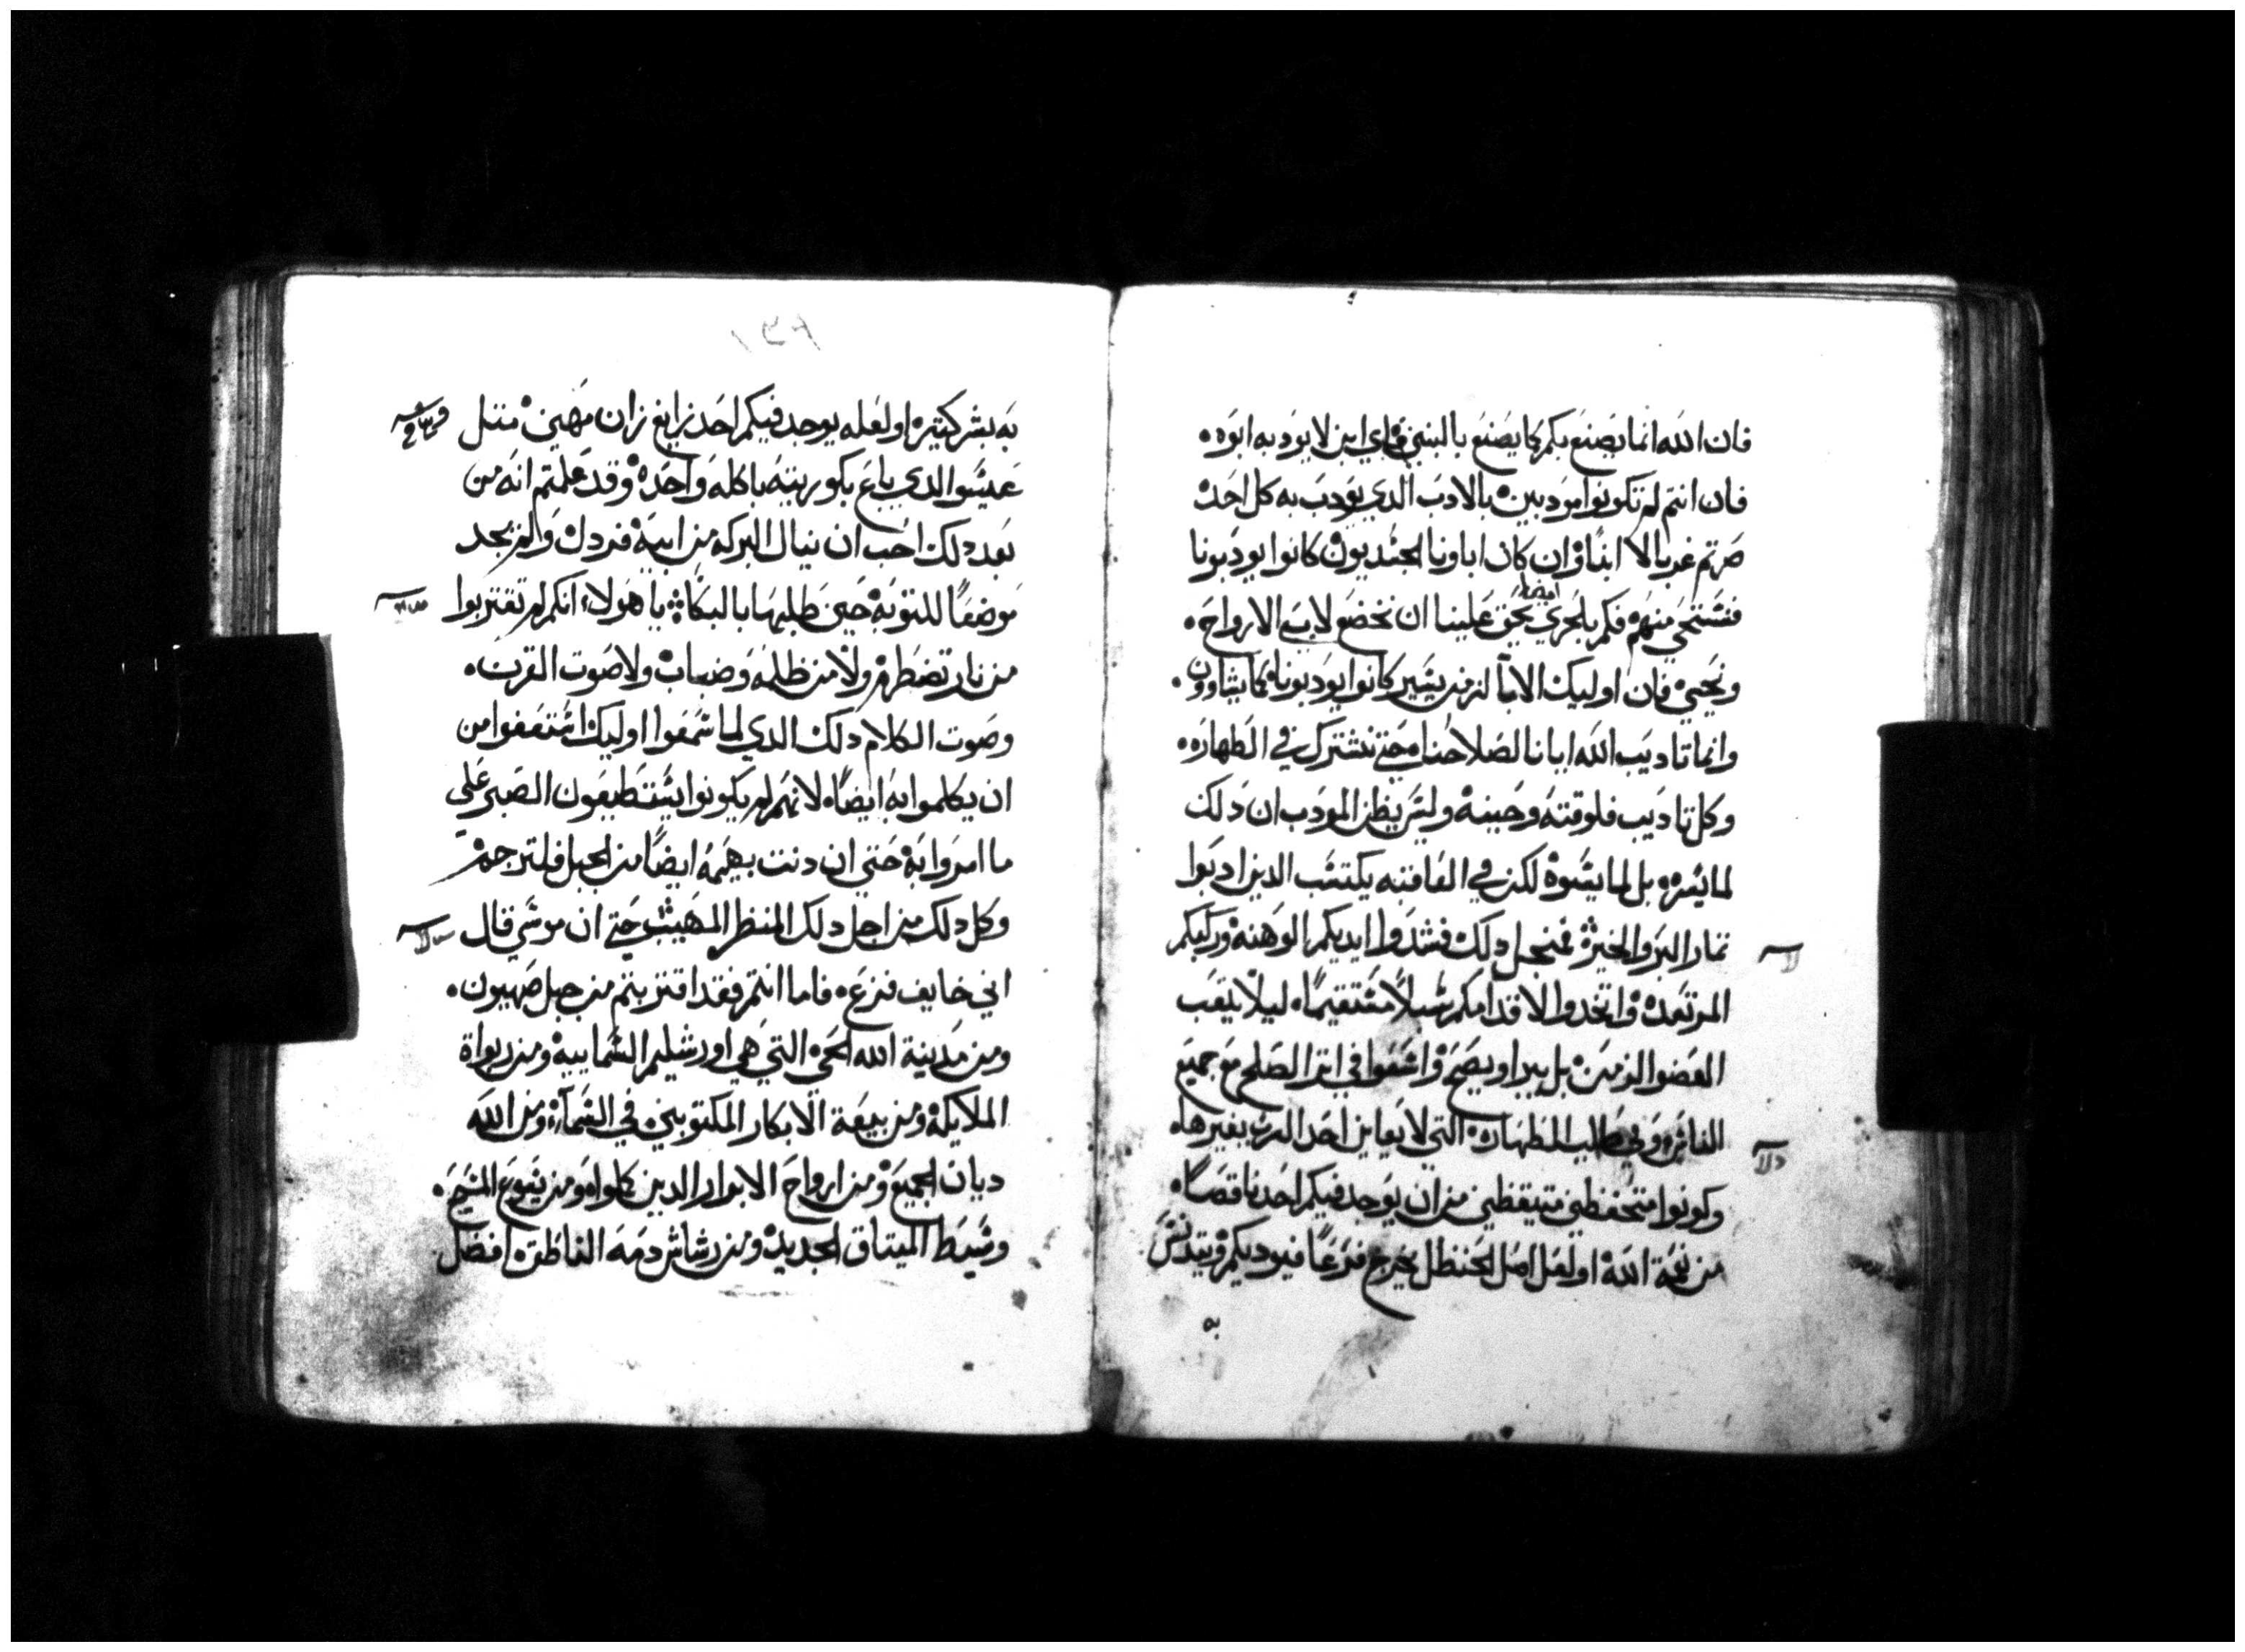 فان الله انما يصنع بكم كما يصنع بالبنين فاي ابن لا يودبه ابوه
فان انتم لم تكونوا مودبين بالادب الدي يودب به كل احد
صرتم غربا لا ابنا وان كان اباونا الجسديون كانوا يودبونا
فنستحي منهم فكم بالحري يحق علينا ان نخضع لاب الارواح
ايضا
ونحيي فان اوليك الابا لزمن يسير كانوا يودبونا كما يشاوون
وانما تاديب الله ايانا لصلاحنا حتي نشترك في الطهاره
وكل تاديب فلوقته وحينه وليس يظن المودب ان دلك
لما يسره بل لما يسوه لكن في العاقبه يكتسب الدين ادبوا
تمار البر والخير فمنجل دلك فشدوا ايديكم الوهنه وركبكم
المرتعده واتخدوا لاقدامكم سبلا مستقيما ليلا يتعب
العضوا الزمن بل يبرا ويصح واسعوا في اتر الصلح مع جميع
الناس وفي طلب الطهاره التي لا يعاين احد الرب بغيرها
وكونوا متحفظين متيقظين من ان يوجد فيكم احد ناقصا
من نعمة الله او لعل اصل الحنظل يخرج فرعا فيوديكم ويتدنس
به
به بشر كتيره او لعله يوجد فيكم احد زايغ زان مهين متل
عيسوا الدي باع بكوريته باكله واحده وقد علمتم انه من
بعد دلك احب ان ينال البركه من ابيه فردل ولم يجد
موضعا للتوبه حين طلبها بالبكا يا هولاء انكم لم تقتربوا
من نار تضطرم ولا من ظلمه وضباب ولا صوت القرن
وصوت الكلام دلك الدي لما سمعوا اوليك استعفوا من
ان يكلموا به ايضا لانهم لم يكونوا يستطيعون الصبر علي
ما امروا به حتي ان دنت بهيمه ايضا من الجبل فلترجم
وكل دلك من اجل دلك المنظر المهيب حتي ان موسي قال
اني خايف فزع فاما انتم فقد اقتربتم من جبل صهيون
ومن مدينة الله الحي التي هي اورشليم السماييه ومن ربواة
الملايكه ومن بيعة الابكار المكتوبين في السماء ومن الله
ديان الجميع ومن ارواح الابرار الدين كملوا ومن يسوع المسيح
وسيط الميتاق الجديد ومن رشاش دمه الناطق افضل